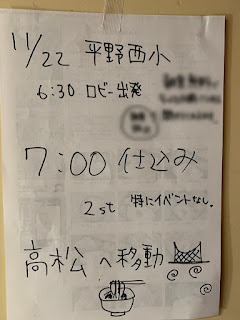 11/22 平野西小
6:30 ロビー出発
7:00 仕込み
2st 特にイベントなし。
高松へ移動